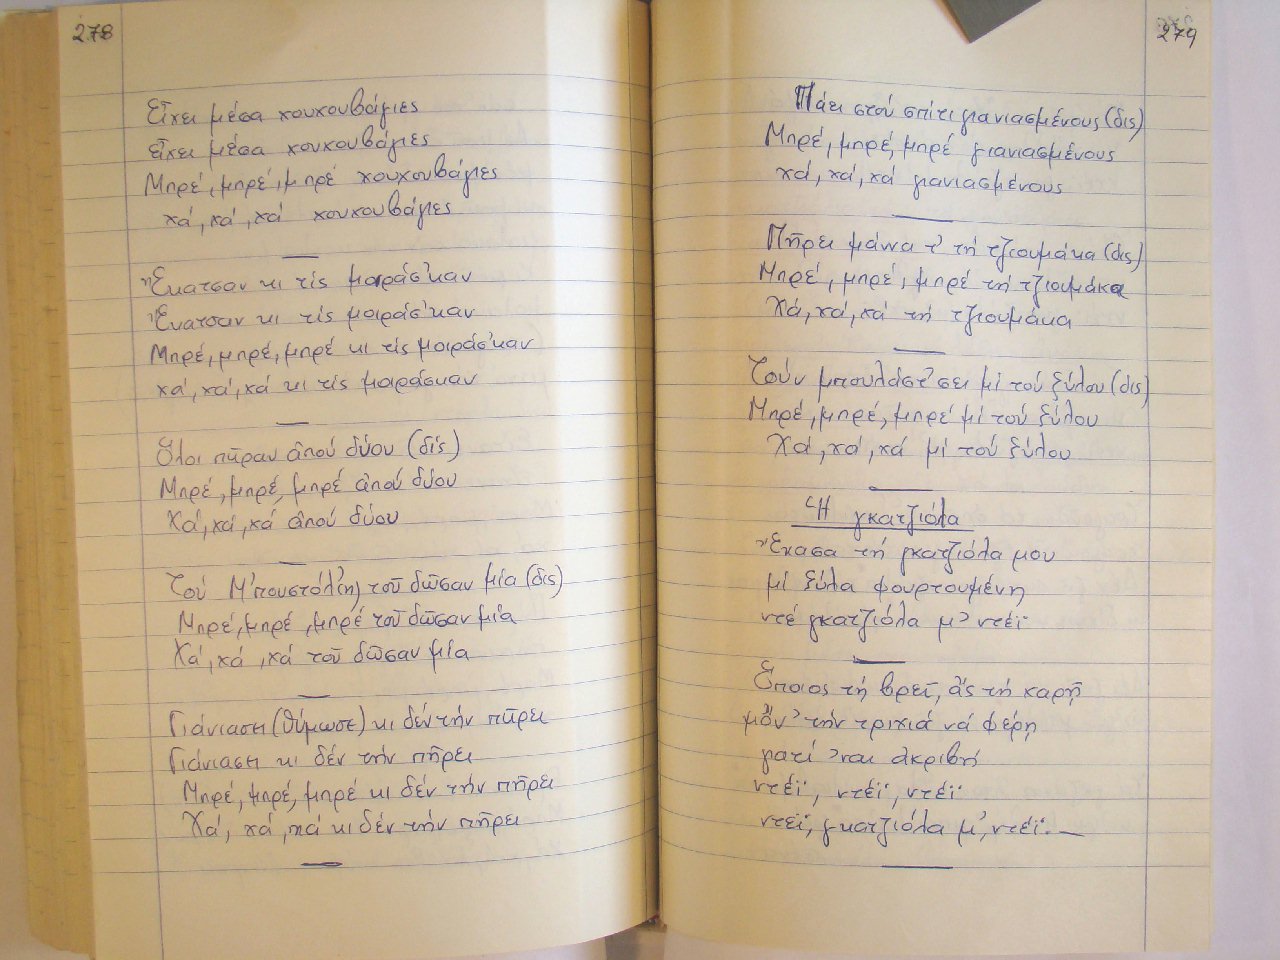 278
Εἶχει μέσα κουκουβάγιες
εἶχει μέσα κουκουβάγιες
Μπρέ, μπρέ, μπρέ κουκουβάγιες
χά, χά, χά κουκουβάγιες
Ἔκατσαν κι τίς μοιράσ'καν
Ἔκατσαν κι τίς μοιράσ'καν
Μπρέ, μπρέ, μπρέ κι τίς μοιράσ'καν
χά, χά, χά κι τίς μοιράσκαν
Ὅλοι πῆραν ἀπού δύου (δίς)
Μπρέ, μπρέ, μπρέ ἀπού δύου
Χά, χά, χά ἀπού δύου
Τοῦ Μ'πουστόλ'(η) τοῦ δῶσαν μία (δις)
Μπρέ, μπρέ, μπρέ τοῦ δῶσαν μία
Χά, χά, χά τοῦ δῶσαν μία
Γιάνιασι (θύμωσε) κι δέν τήν πῆρει
Γιάνιασι κι δέν τήν πῆρει
Μπρέ, μπρέ, μπρέ κι δέν τήν πῆρει
Χά, χά, χά κι δέν τήν πῆρει
279
Πάει στού σπίτι γιανιασμένους (δις)
Μπρέ, μπρέ, μπρέ γιανιασμένους
χά, χά, χά γιανιασμένους
Πῆρει μάννα τ' τή τζιουμάκα (δις)
Μπρέ, μπρέ, μπρέ τή τζιουμάκα
Χά, χά, χά τή τζιουμάκα
Τούν μπουλάστ'σει μί τού ξύλου (δις)
Μπρέ, μπρέ, μπρέ μί τού ξύλου
Χά, χά, χά μί τού ξύλου
Ἡ γκατζιόλα
Ἔχασα τή γκατζιόλα μου
μί ξύλα φουρτουμένη
ντέ γκατζιόλα μ' ντέϊ
Ὅποιος τή βρεῖ, ἄς τή χαρῆ
μὄν' τήν τριχιά νά φέρη
γιατί 'ναι ἀκριβή
ντέϊ, ντέϊ, ντέϊ
ντέϊ, γκατζιόλα μ', ντέϊ.